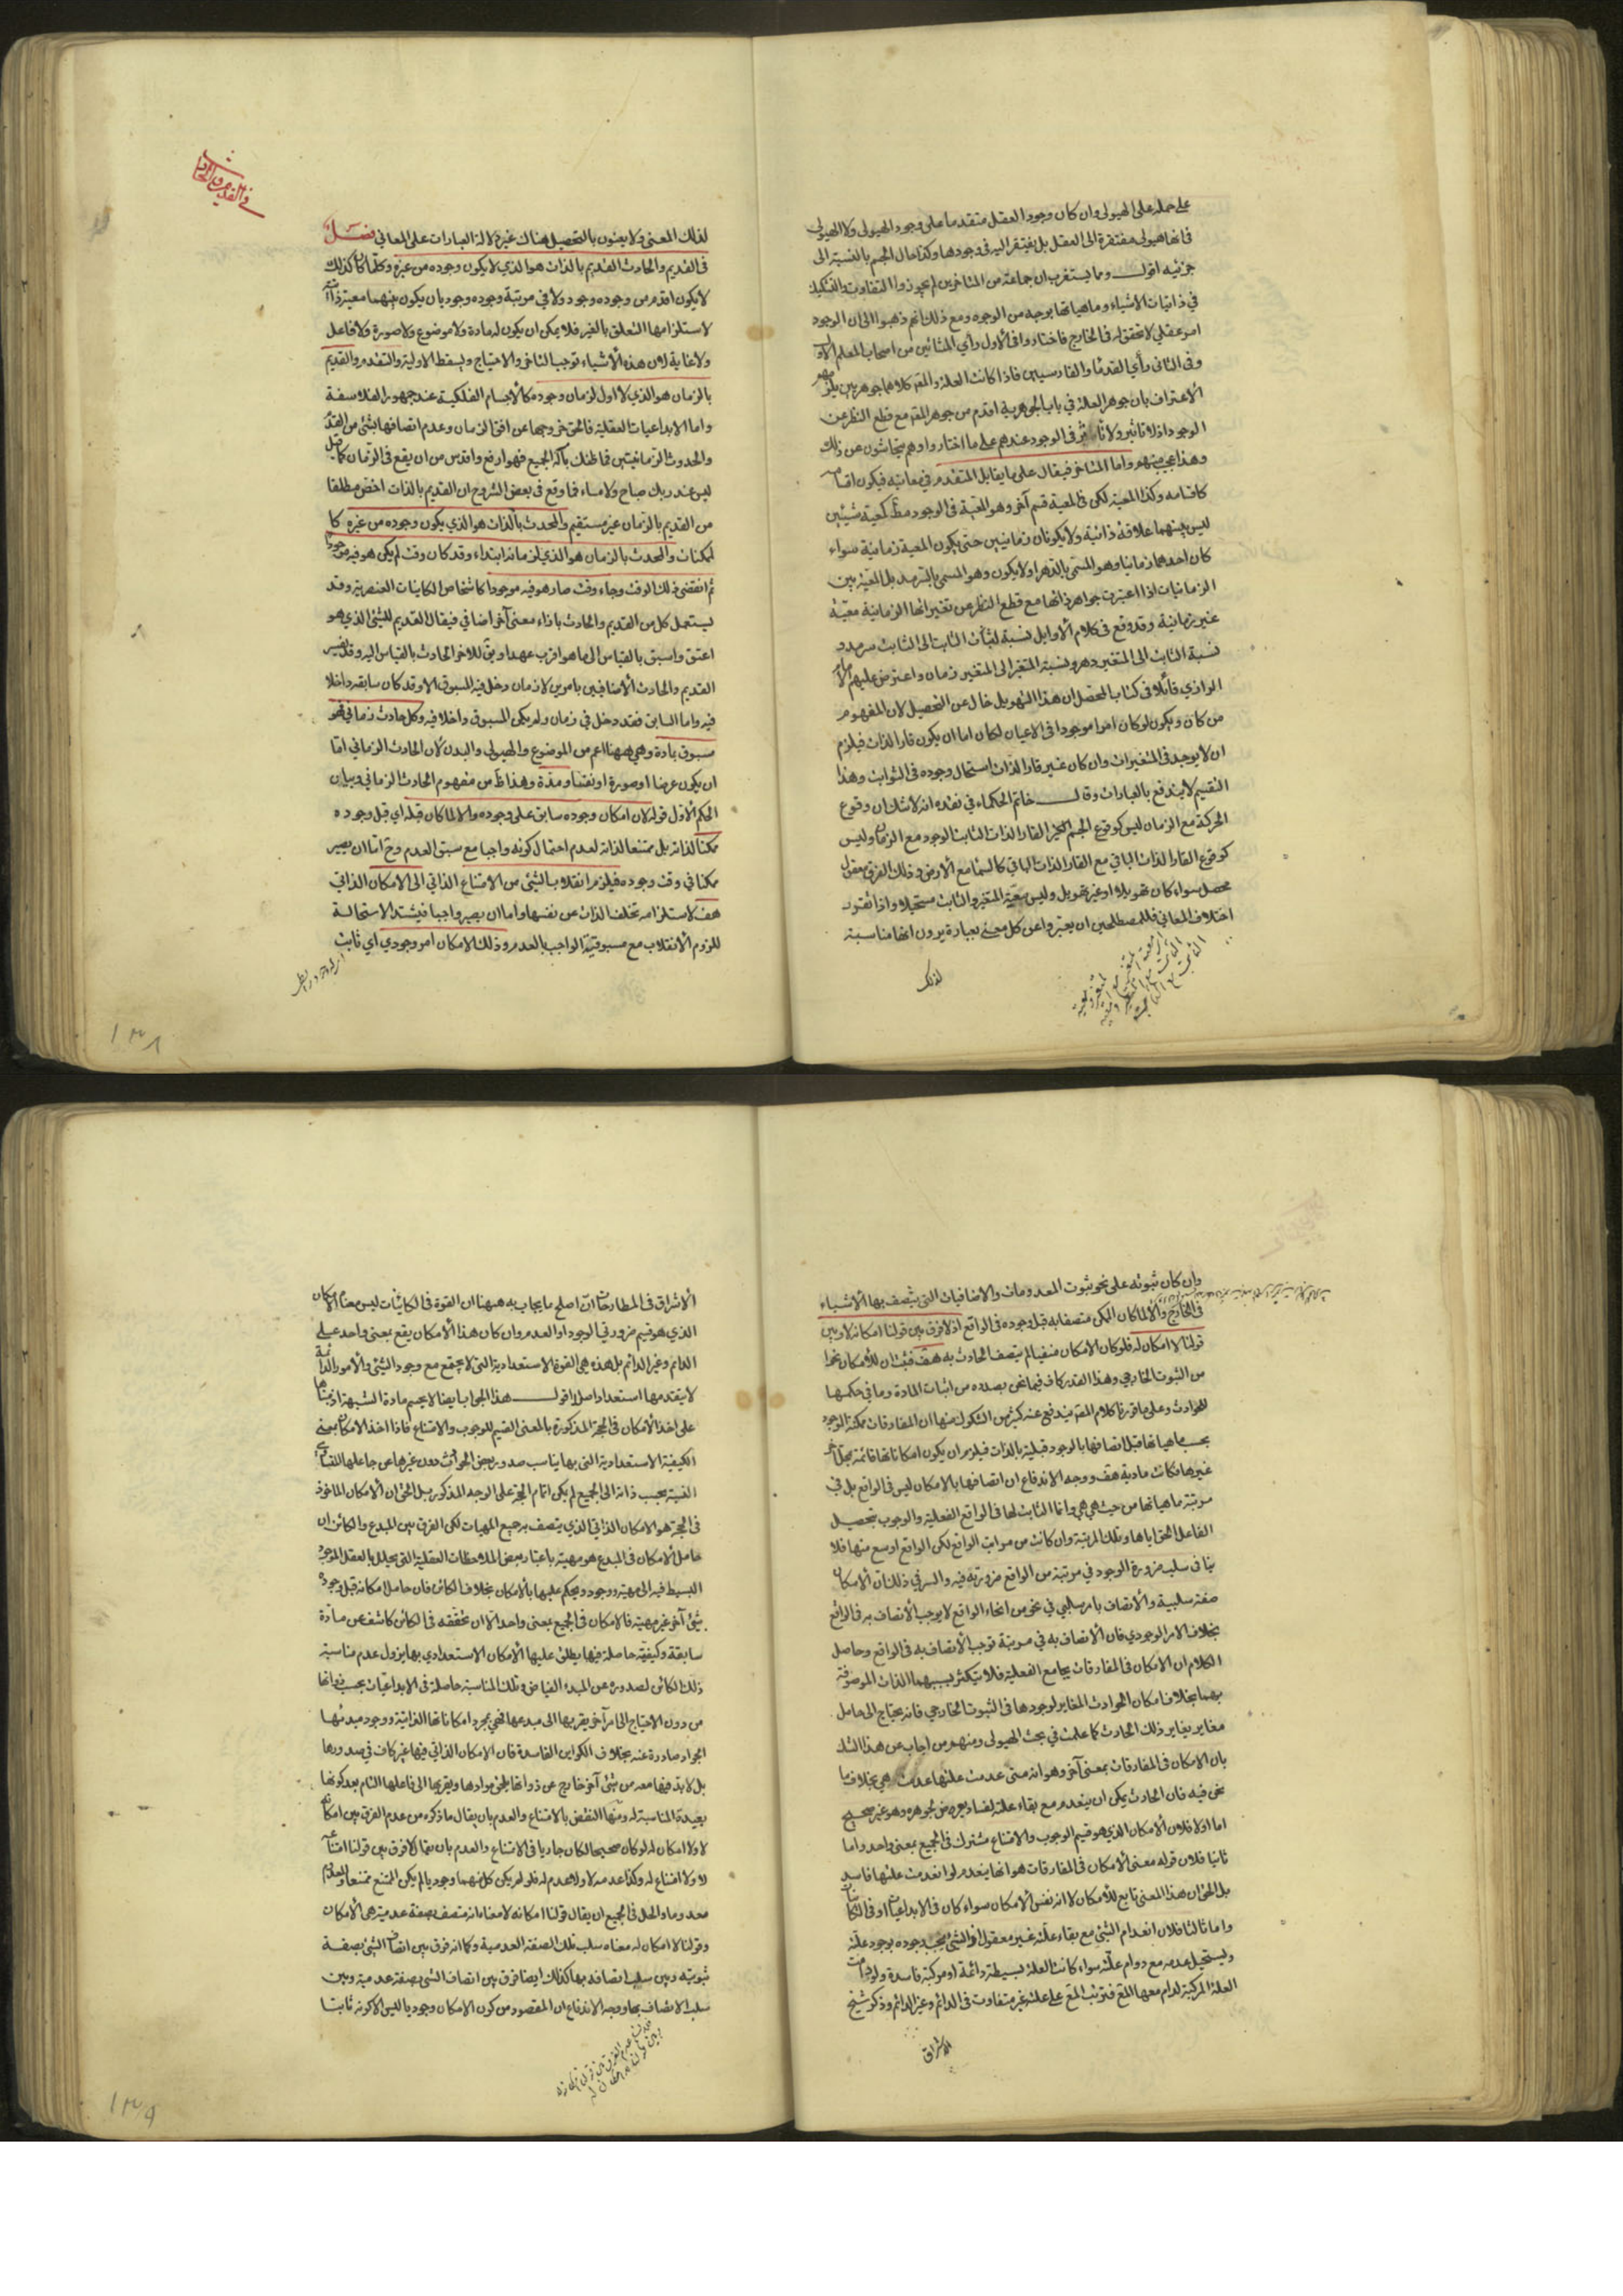 على حمله على الهيولى وان كان وجود العقل متقدما على وجود الهيولى ولا الهيولى
فانها هيولى مفتقرة الى العقل بل يفتقر اليه في وجودها وكذا حال الجسم بالنسبة الى
جزئيه اقول ومما يستغرب ان جماعة من المتاخرين لم يجوزوا التفاوت والتشكيك
في ذاتيات الاشياء وماهياتها بوجه من الوجوه ومع ذلك انهم ذهبوا الى ان الوجود
امر عقلي لا تحقق له في الخارج فاختاروا في الأول رأي المشائين من اصحاب المعلم الاول
وفي الثاني رأي القدماء والفارسيين فاذا كانت العلة والمعلول كلاهما جوهرين يلزمهم
الاعتراف بان جوهر العلة في باب الجوهرية اقدم من جوهر المعلول مع قطع النظر عن
الوجود اذ لا تاثير ولا تأثر في الوجود عندهم على ما اختاروا وهم يتحاشون عن ذلك
وهذا عجيب منهم واما المتاخر فيقال على ما يقابل المتقدم في معانيه فيكون اقسامه
كاقسامه وكذا المعية لكن في المعية قسم آخر وهو المعية في الوجود مط كمعية شيئين
ليس بينهما علاقة ذاتية ولا يكونان زمانيين حتى يكون المعية زمانية سواء
كان احدهما زمانيا وهو المسمى بالدهر او لا يكون وهو المسمى بالسرمد بل المعية بين
الزمانيات اذا اعتبرت جواهر ذاتها مع قطع النظر عن تغيراتها الزمانية معية
غير زمانية وقد وقع في كلام الأوايل نسبة الثابت الى الثابت سرمد و
نسبة الثابت الى المتغير دهر ونسبة المتغير الى المتغير زمان واعترض عليهم الامام
الرازي قائلا في كتاب المحصل ان هذا التهويل خال عن التحصيل لان المفهوم
من كان ويكون لو كان امرا موجودا في الاعيان لكان اما ان يكون قار الذات فيلزم
ان لا يوجد في المتغيرات وان كان غير قار الذات استحال وجوده في الثوابت وهذا
التقسيم لا يندفع بالعبارات وقال خاتم الحكماء في نقده انه لا شك ان وقوع
الحركة مع الزمان ليس كوقوع الجسم القار الذات الثابت الوجود مع الزمان وليس
كوقوع القار الذات الباقي مع القار الذات الباقي كالسماء مع الأرض وذلك الفرق معقول
محصل سواء كان تهويلا او غير تهويل وليس معية المتغير والثابت مستحيلا واذا تقرر
اختلاف المعاني فللمصطلحين ان يعبروا عن كل معنى بعبارة يرون انها مناسبة
لذلك
في القديم والحادث
لذلك المعنى ولا يعنون بالتحصيل هناك غير دلالة العبارات على المعاني فصل
في القديم والحادث القديم بالذات هو الذي لا يكون وجوده من غيره وكلما كان كذلك
لا يكون اقدم من وجوده وجود ولا في مرتبة وجوده وجود بان يكون بينهما معية ذاتية
لاستلزامها التعلق بالغير فلا يمكن ان يكون له مادة ولا موضوع ولا صورة ولا فاعل
ولا غاية لان هذه الأشياء توجب التاخر والاحتياج وليسقط الاولية والتقدم والقديم
بالزمان هو الذي لا اول لزمان وجوده كالأجسام الفلكية عند جمهور الفلاسفة
واما الابداعيات العقلية فالحق خروجها عن افق الزمان وعدم اتصافها بشئ من القدم
والحدوث الزمانيتين فما ظنك باله الجميع فهو ارفع واقدس من ان يقع في الزمان كما قيل
ليس عند ربك صباح ولا مساء فما وقع في بعض الشروح ان القديم بالذات اخص مطلقا
من القديم بالزمان غير مستقيم والمحدث بالذات هو الذي يكون وجوده من غيره كا
لممكنات والمحدث بالزمان هو الذي لزمانه ابتداء وقد كان وقت لم يكن هو فيه موجودا
ثم انقضى ذلك الوقت وجاء وقت صار هو فيه موجودا كاشخاص الكاينات العنصرية وقد
يستعمل كل من القديم والحادث بازاء معنى آخر اضافي فيقال القديم للشئ الذي هو
اعتق واسبق بالقياس الى ما هو اقرب عهدا ويق للآخر الحادث بالقياس اليه وقد يفسر
القديم والحادث الأضافيين بامرين لا زمان دخل فيه المسبوق الا وقد كان سابقه داخلا
فيه واما السابق فقد دخل في زمان ولم يكن المسبوق داخلا فيه وكل حادث زماني فهو
مسبوق بمادة وهي ههنا اعم من الموضوع والهيولى والبدن لأن الحادث الزماني اما
ان يكون عرضا او صورة او نفسا ومدة وهذا ظ من مفهوم الحادث الزماني وبيان
الحكم الأول قوله لان امكان وجوده سابق على وجوده والا لما كان قبله اي قبل وجوده
ممكنا لذاته بل ممتنعا لذاته لعدم احتمال كونه واجبا مع سبق العدم وح اما ان يصير
ممكنا في وقت وجوده فيلزم انقلاب الشئ من الامتناع الذاتي الى الامكان الذاتي
هف لاستلزامه تخلف الذات عن نفسها واما ان يصير واجبا فيشتد الاستحالة
للزوم الانقلاب مع مسبوقية الواجب بالعدم وذلك الامكان امر وجودي اي ثابت
١٣٨
وان كان ثبوته على نحو ثبوت المعدومات والاضافيات التي يتصف بها الأشياء
في الخارج والا لما كان الممكن متصفا به قبل وجوده في الواقع اذ لا فرق بين قولنا امكانه لا وبين
قولنا لا امكان له فلو كان الامكان منفيا لم يتصف الحادث به هف فثبت ان للأمكان نحوا
من الثبوت الخارجي وهذا القدر كاف فيما نحن بصدده من اثبات المادة وما في حكمها
للحوادث وعلى ما قررنا كلام المصـ يندفع عنه كثير من الشكوك منها ان المفارقات ممكنة الوجود
بحسب ماهياتها قبل اتصافها بالوجود قبلية بالذات فيلزم ان يكون امكاناتها قائمة بمحل
غيرها فكانت مادية هف ووجه الاندفاع ان اتصافها بالامكان ليس في الواقع بل في
مرتبة ماهياتها من حيث هي هي وانما الثابت لها في الواقع الفعلية والوجوب بتحصيل
الفاعل الحق اياها وتلك المرتبة وان كانت من مراتب الواقع لكن الواقع اوسع منها فلا
ينافي سلب ضرورة الوجود في مرتبة من الواقع ضرورته فيه والسر في ذلك ان الامكان
صفة سلبية والأتصاف بامر سلبي في نحو من انحاء الواقع لا يوجب الأتصاف به في الواقع
بخلاف الامر الوجودي فان الأتصاف به في مرتبة توجب الأتصاف به في الواقع وحاصل
الكلام ان الامكان في المفارقات يجامع الفعلية فلا يتكثر بسببهما الذات الموصوفة
بهما بخلاف امكان الحوادث المغاير لوجودها في الثبوت الخارجي فانه يحتاج الى حامل
مغاير يغاير ذلك الحادث كما علمت في بحث الهيولى ومنهم من اجاب عن هذا الشك
بان الامكان في المفارقات بمعنى آخر وهو انه متى عدمت علتها عدمت هي بخلاف ما
نحن فيه فان الحادث يمكن ان ينعدم مع بقاء علته لفساد يعرض لجوهره وهو غير صحيح
اما اولا فلان الأمكان الذي هو قسيم الوجوب والامتناع مشترك في الجميع بمعنى واحد واما
ثانيا فلان قوله معنى الأمكان في المفارقات هو انها ينعدم لو انعدمت علتها فاسد
بل الحق ان هذا المعنى تابع للأمكان لا انه نفس الأمكان سواء كان في الابداعيات او في الكاينات
واما ثالثا فلان انعدام الشئ مع بقاء علته غير معقول اذ الشئ يجب وجوده بوجود علته
ويستحيل عدمه مع دوام علته سواء كانت العلة بسيطة دائمة او مركبة فاسدة ولو دامت
العلة المركبة لدام معها المعلول فترتب المعلول على علته غير متفاوت في الدائم وغير الدائم وذكر شيخ
الاشراق
الأشراق في المطارحات ان اصلح ما يجاب به ههنا ان القوة في الكائنات ليس معناه الامكان
الذي هو قسيم ضرورتي الوجود او العدم وان كان هذا الأمكان يقع بمعنى واحد على
الدائم وغير الدائم بل هذه هي القوة الاستعدادية التي لا تجتمع مع وجود الشئ والأمور الدائمة
لا يتقدمها استعداد اصلا اقول هذا الجواب ايضا لا يحسم مادة الشبهة اذ بناؤها
على اخذ الأمكان في الحجة المذكورة بالمعنى القسيم للوجوب والامتناع فاذا اخذ الامكان بمعنى
الكيفية الاستعدادية التي بها يناسب صدور بعض الحوادث دون غيرها عن جاعلها
الفيض بحسب ذاته الى الجميع لم يكن اتمام الحجة على الوجه المذكور بل الحق ان الأمكان الماخوذ
في الحجة هو الامكان الذاتي الذي يتصف به جميع المهيات لكن الفرق بين المبدع والكائن ان
حامل الأمكان في المبدع هو مهيته باعتبار بعض الملاحظات العقلية التي يحلل بالعقل الموجود
البسيط فيه الى مهية ووجود ويحكم عليها بالأمكان بخلاف الكائن فان حامل امكانه قبل وجوده
شئ آخر غير مهيته فالامكان في الجميع بمعنى واحد الا ان تحققه في الكائن كاشف عن مادة
سابقة وكيفية حاصلة فيها يطلق عليها الأمكان الاستعدادي بها يزول عدم مناسبة
ذلك الكائن لصدوره عن المبدء الفياض وتلك المناسبة حاصلة في الابداعيات بحسب ذواتها
من دون الاحتياج الى امر آخر يقربها الى مبدعها فهي بمجرد امكاناتها الذاتية ووجود مبدئها
الجواد صادرة عنه بخلاف الكواين الفاسدة فان الامكان الذاتي فيها غير كاف في صدورها
بل لا بد فيها معه من شئ آخر خارج عن ذواتها يلحق موادها ويقربها الى فاعلها التام بعد كونها
بعيدة المناسبة له ومنها النقض بالامتناع والعدم بان يقال ما ذكره من عدم الفرق بين امكانه
لا ولا امكان له لو كان صحيحا لكان جاريا في الامتناع والعدم بان يقال لا فرق بين قولنا امتناعه
لا ولا امتناع له وكذا عدمه لا ولا عدم له فلو لم يكن كل منهما وجوديا لم يكن الممتنع ممتنعا والمعدوم
معدوما والحل في الجميع ان يقال قولنا امكانه لا معناه انه متصف بصفة عدمية هي الأمكان
وقولنا لا امكان له معناه سلب تلك الصفة العدمية وكما انه فرق بين اتصاف الشئ بصفة
ثبوتية وبين سلب اتصافه بها كذلك ايضا فرق بين اتصاف الشئ بصفة عدمية وبين
سلب الاتصاف بها ووجه الاندفاع ان المقصود من كون الامكان وجوديا ليس الا كونه ثابتا
١٣٩